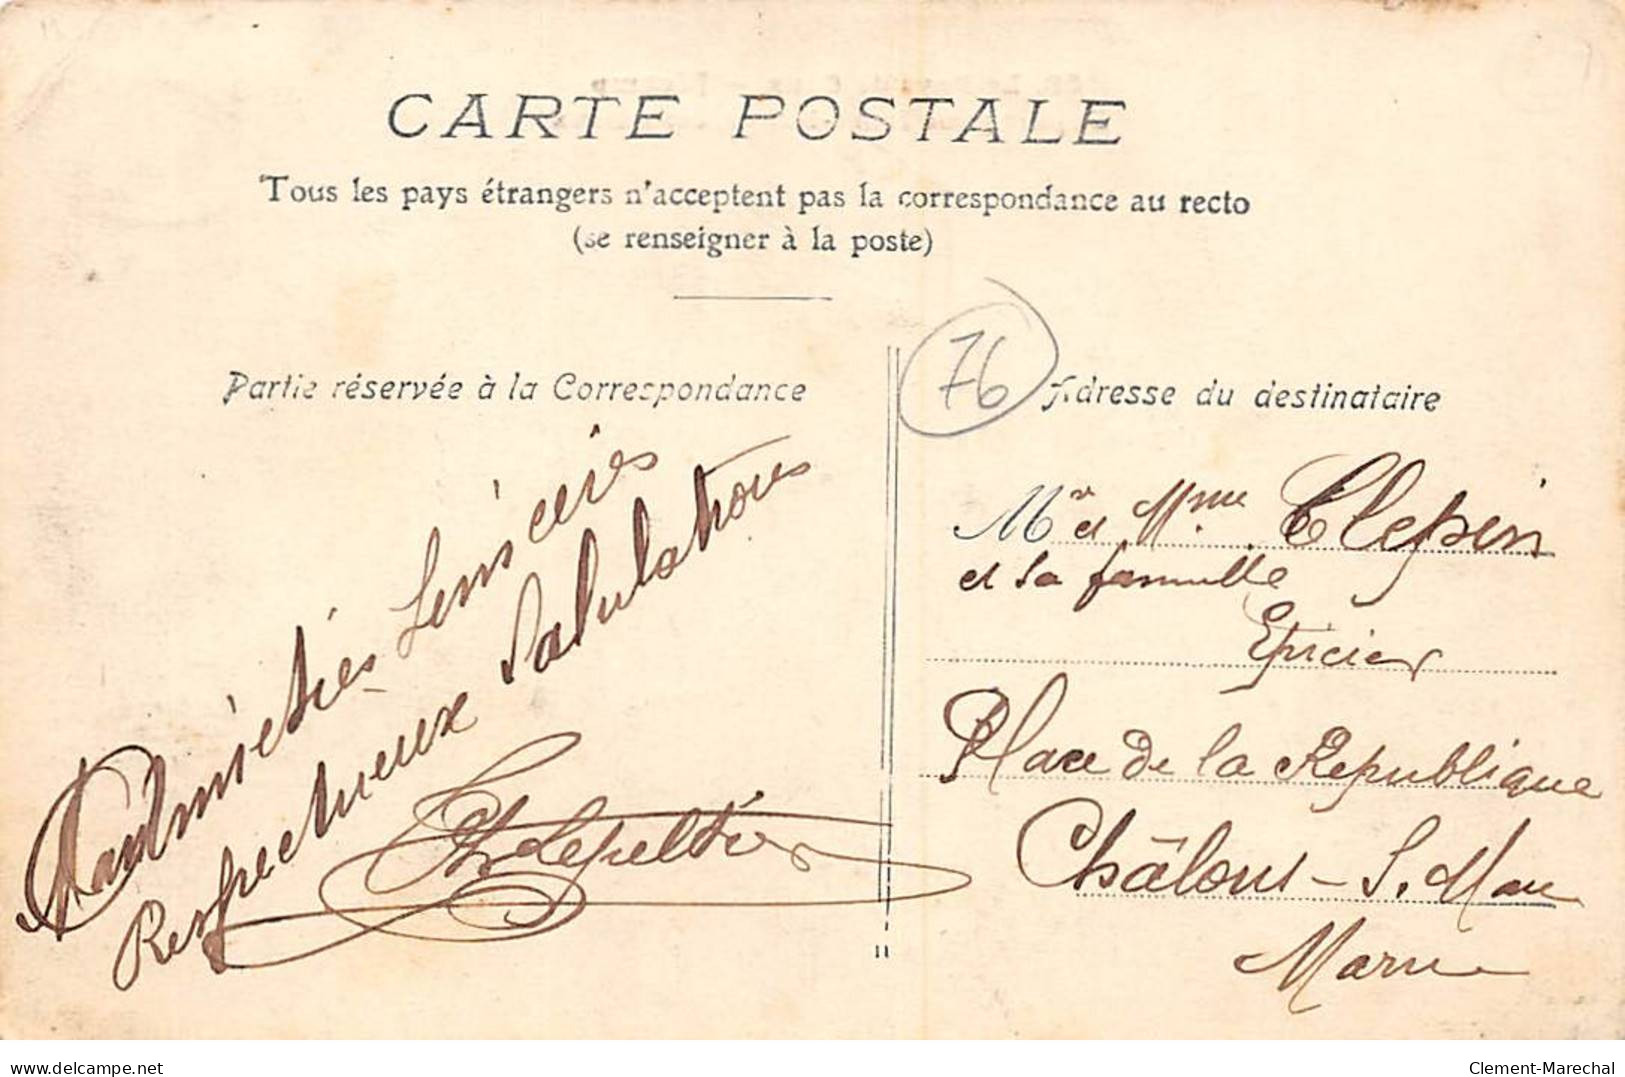 CARTE POSTALE
Tous les pays étrangers n'acceptent pas la correspondance au recto
(se renseigner à la poste)
Partie réservée à la Correspondance
76
Adresse du destinataire
Amitiés Sincères
Respectueux Salutations
Ch Lepeltier
Mr et Mme Clepin
et sa famille
Epicier
Place de la République
Châlons - S. Mar
Marne
delcampe.net
Clement-Marechal